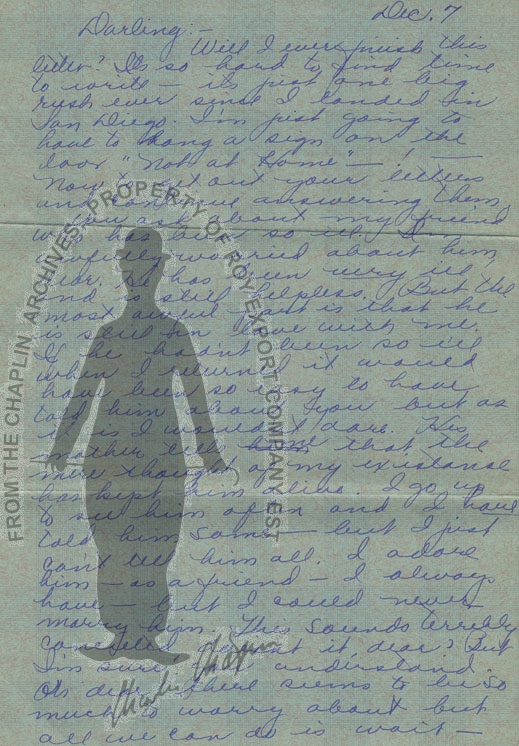 Dec. 7
Darling:-
Will I ever finish this
letter? It's so hard to find time
to write - it's just one big
rush ever since I landed in
San Diego. I'm just going to
have to hang a sign on the
door "Not at Home" - ! -
Now to get out your letters
and continue answering them.
You ask about my friend
who has been so ill. I'm
awfully worried about him,
dear. He has been very ill
and is still helpless. But the
most awful part is that he
is still in love with me.
If he hadn't been so ill
when I returned it would
have been so easy to have
told him about you but as
it is I wouldn't dare. His
mother tells him that the
mere thought of my existance
has kept him alive. I go up
to see him often and I have
told him some - but I just
can't tell him all. I adore
him - as a friend - I always
have - but I could never
marry him. This sounds terribly
conceited doesn't it dear? But
I'm sure you understand.
Oh dear there seems to be so
much to worry about but
all we can do is wait -
FROM THE CHAPLIN ARCHIVES. PROPERTY OF ROY EXPORT COMPANY EST
Charlie Chaplin